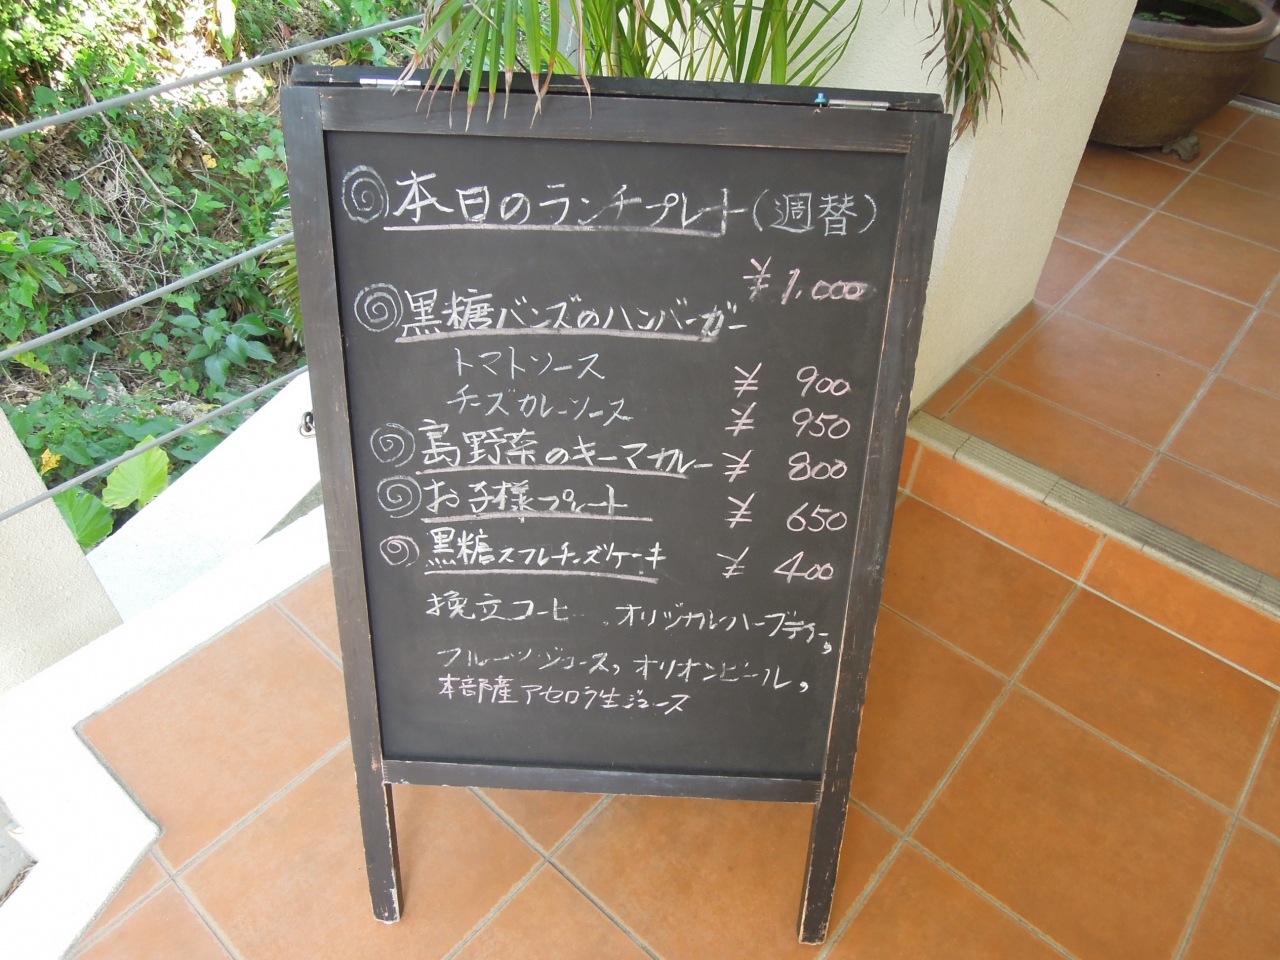 本日のランチプレート(週替)
¥1,000
黒糖バンズのハンバーガー
トマトソース ¥900
チーズカレーソース ¥950
島野菜のキーマカレー ¥800
お子様プレート ¥650
黒糖スフレチーズケーキ ¥400
挽立コーヒー、オリジナルハーブティー,
フルーツジュース,オリオンビール,
本部産アセロラ生ジュース